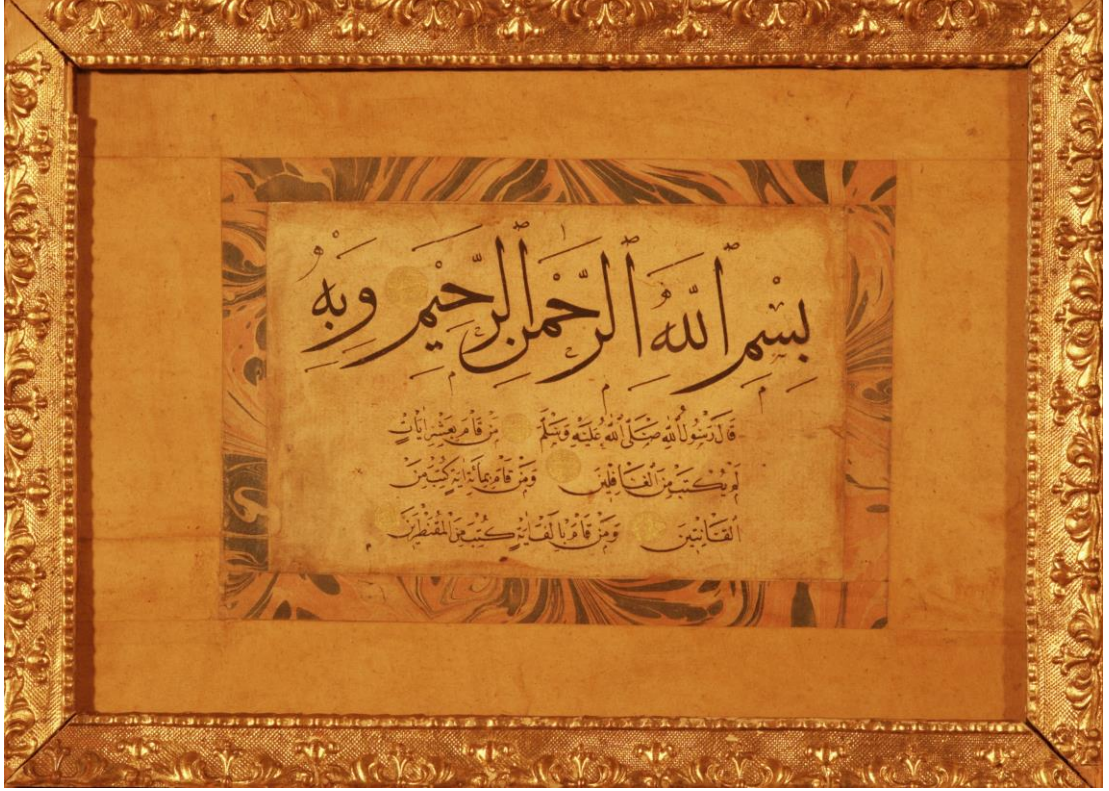 بِسْمِ ٱللّٰهِ ٱلرَّحْمٰنِ ٱلرَّحِيْمِ وَبِهِ
قَالَ رَسُولُ ٱللّٰهِ صَلَّى ٱللّٰهُ عَلَيْهِ وَسَلَّمَ مَنْ قَامَ بِعَشْرِ اٰيَاتٍ
لَمْ يُكْتَبْ مِنَ ٱلْغَافِلِينَ وَمَنْ قَامَ بِمِائَةِ اٰيَةٍ كُتِبَ مِنَ
ٱلْقَانِتِينَ وَمَنْ قَامَ بِاَلْفِ اٰيَةٍ كُتِبَ مِنَ ٱلْمُقَنْطِرِينَ